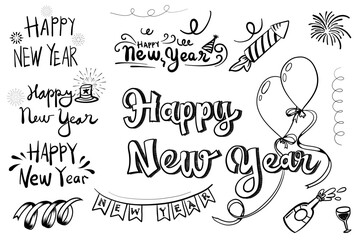 HAPPY
NEW YEAR
HAPPY
New, Year
Happy
New Year
HAPPY
New Year
Happy
New Year
NEW YEAR